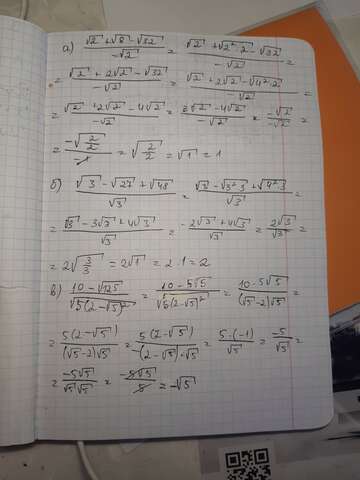 а) (√2 + √8 - √32)/(-√2) = (√2 + √(2²·2) - √32)/(-√2) =
= (√2 + 2√2 - √32)/(-√2) = (√2 + 2√2 - √(4²·2))/(-√2) =
= (√2 + 2√2 - 4√2)/(-√2) = (3√2 - 4√2)/(-√2) = (-√2)/(-√2) =
= √(2/2) = √1 = 1
б) (√3 - √27 + √48)/√3 = (√3 - √(3²3) + √(4²3))/√3 =
= (√3 - 3√3 + 4√3)/√3 = (-2√3 + 4√3)/√3 = 2√3/√3 =
= 2√(3/3) = 2√1 = 2·1 = 2
в) (10 - √125)/√(5(2-√5)²) = (10 - 5√5)/√(5(2-√5)²) = (10 - 5√5)/((√5-2)√5) =
= 5(2-√5)/((√5-2)√5) = 5(2-√5)/(-(2-√5)·√5) = 5·(-1)/√5 = -5/√5 =
= -5√5/(√5√5) = -5√5/5 = -√5